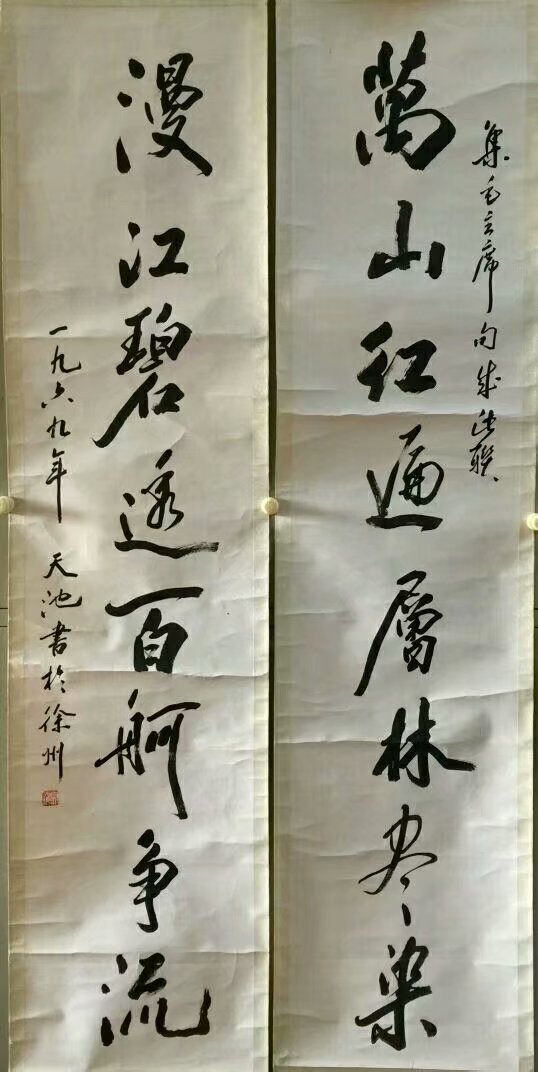 集毛主席句成此联
萬山红遍層林尽染
漫江碧透百舸争流
一九六九年 天池书於徐州